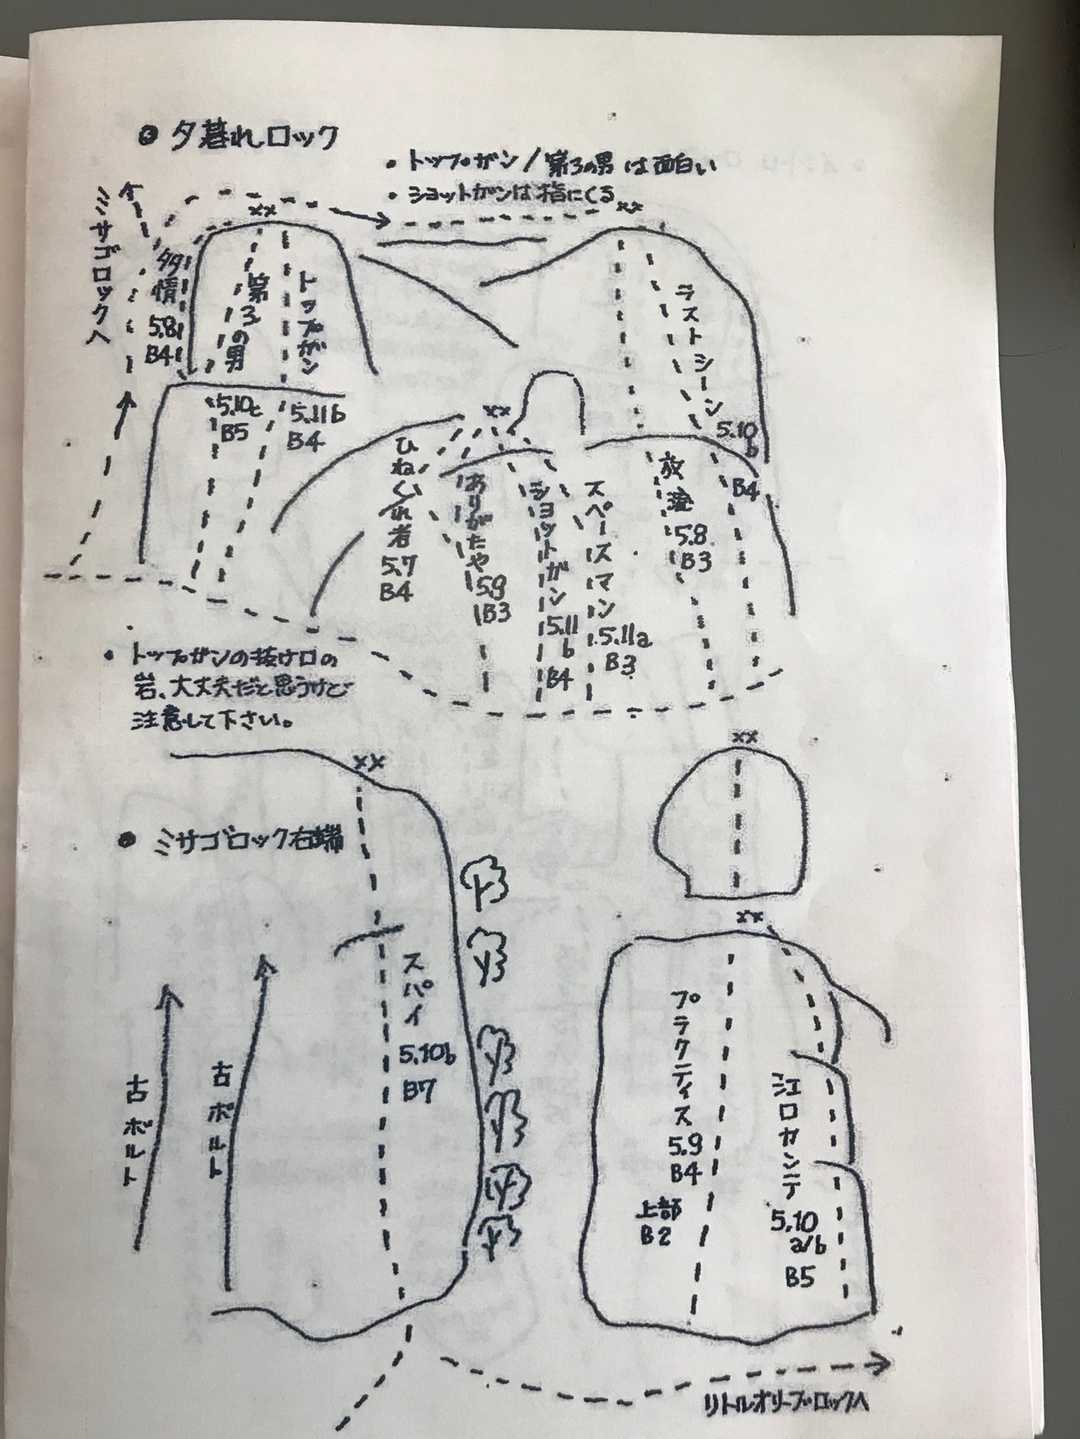 夕暮れロック
・トップガン/第3の男は面白い
・ショットガンは指にくる
ミサゴロックへ
多情
5.8
B4
第3の男
5.10c
B5
トップガン
5.11b
B4
ラストシーン
5.10
b
B4
ひねくれ者
5.7
B4
ありがたや
5.9
B3
ショットガン
5.11
b
B4
スペースマン
5.11a
B3
5.8
B3
・トップガンの抜け口の
岩、大丈夫だと思うけど
注意して下さい。
ミサゴロック右端
古ボルト
古ボルト
スパイ
5.10b
B7
プラクティス
5.9
B4
上部
B2
江口カンテ
5.10
a/b
B5
リトルオリーブロックへ